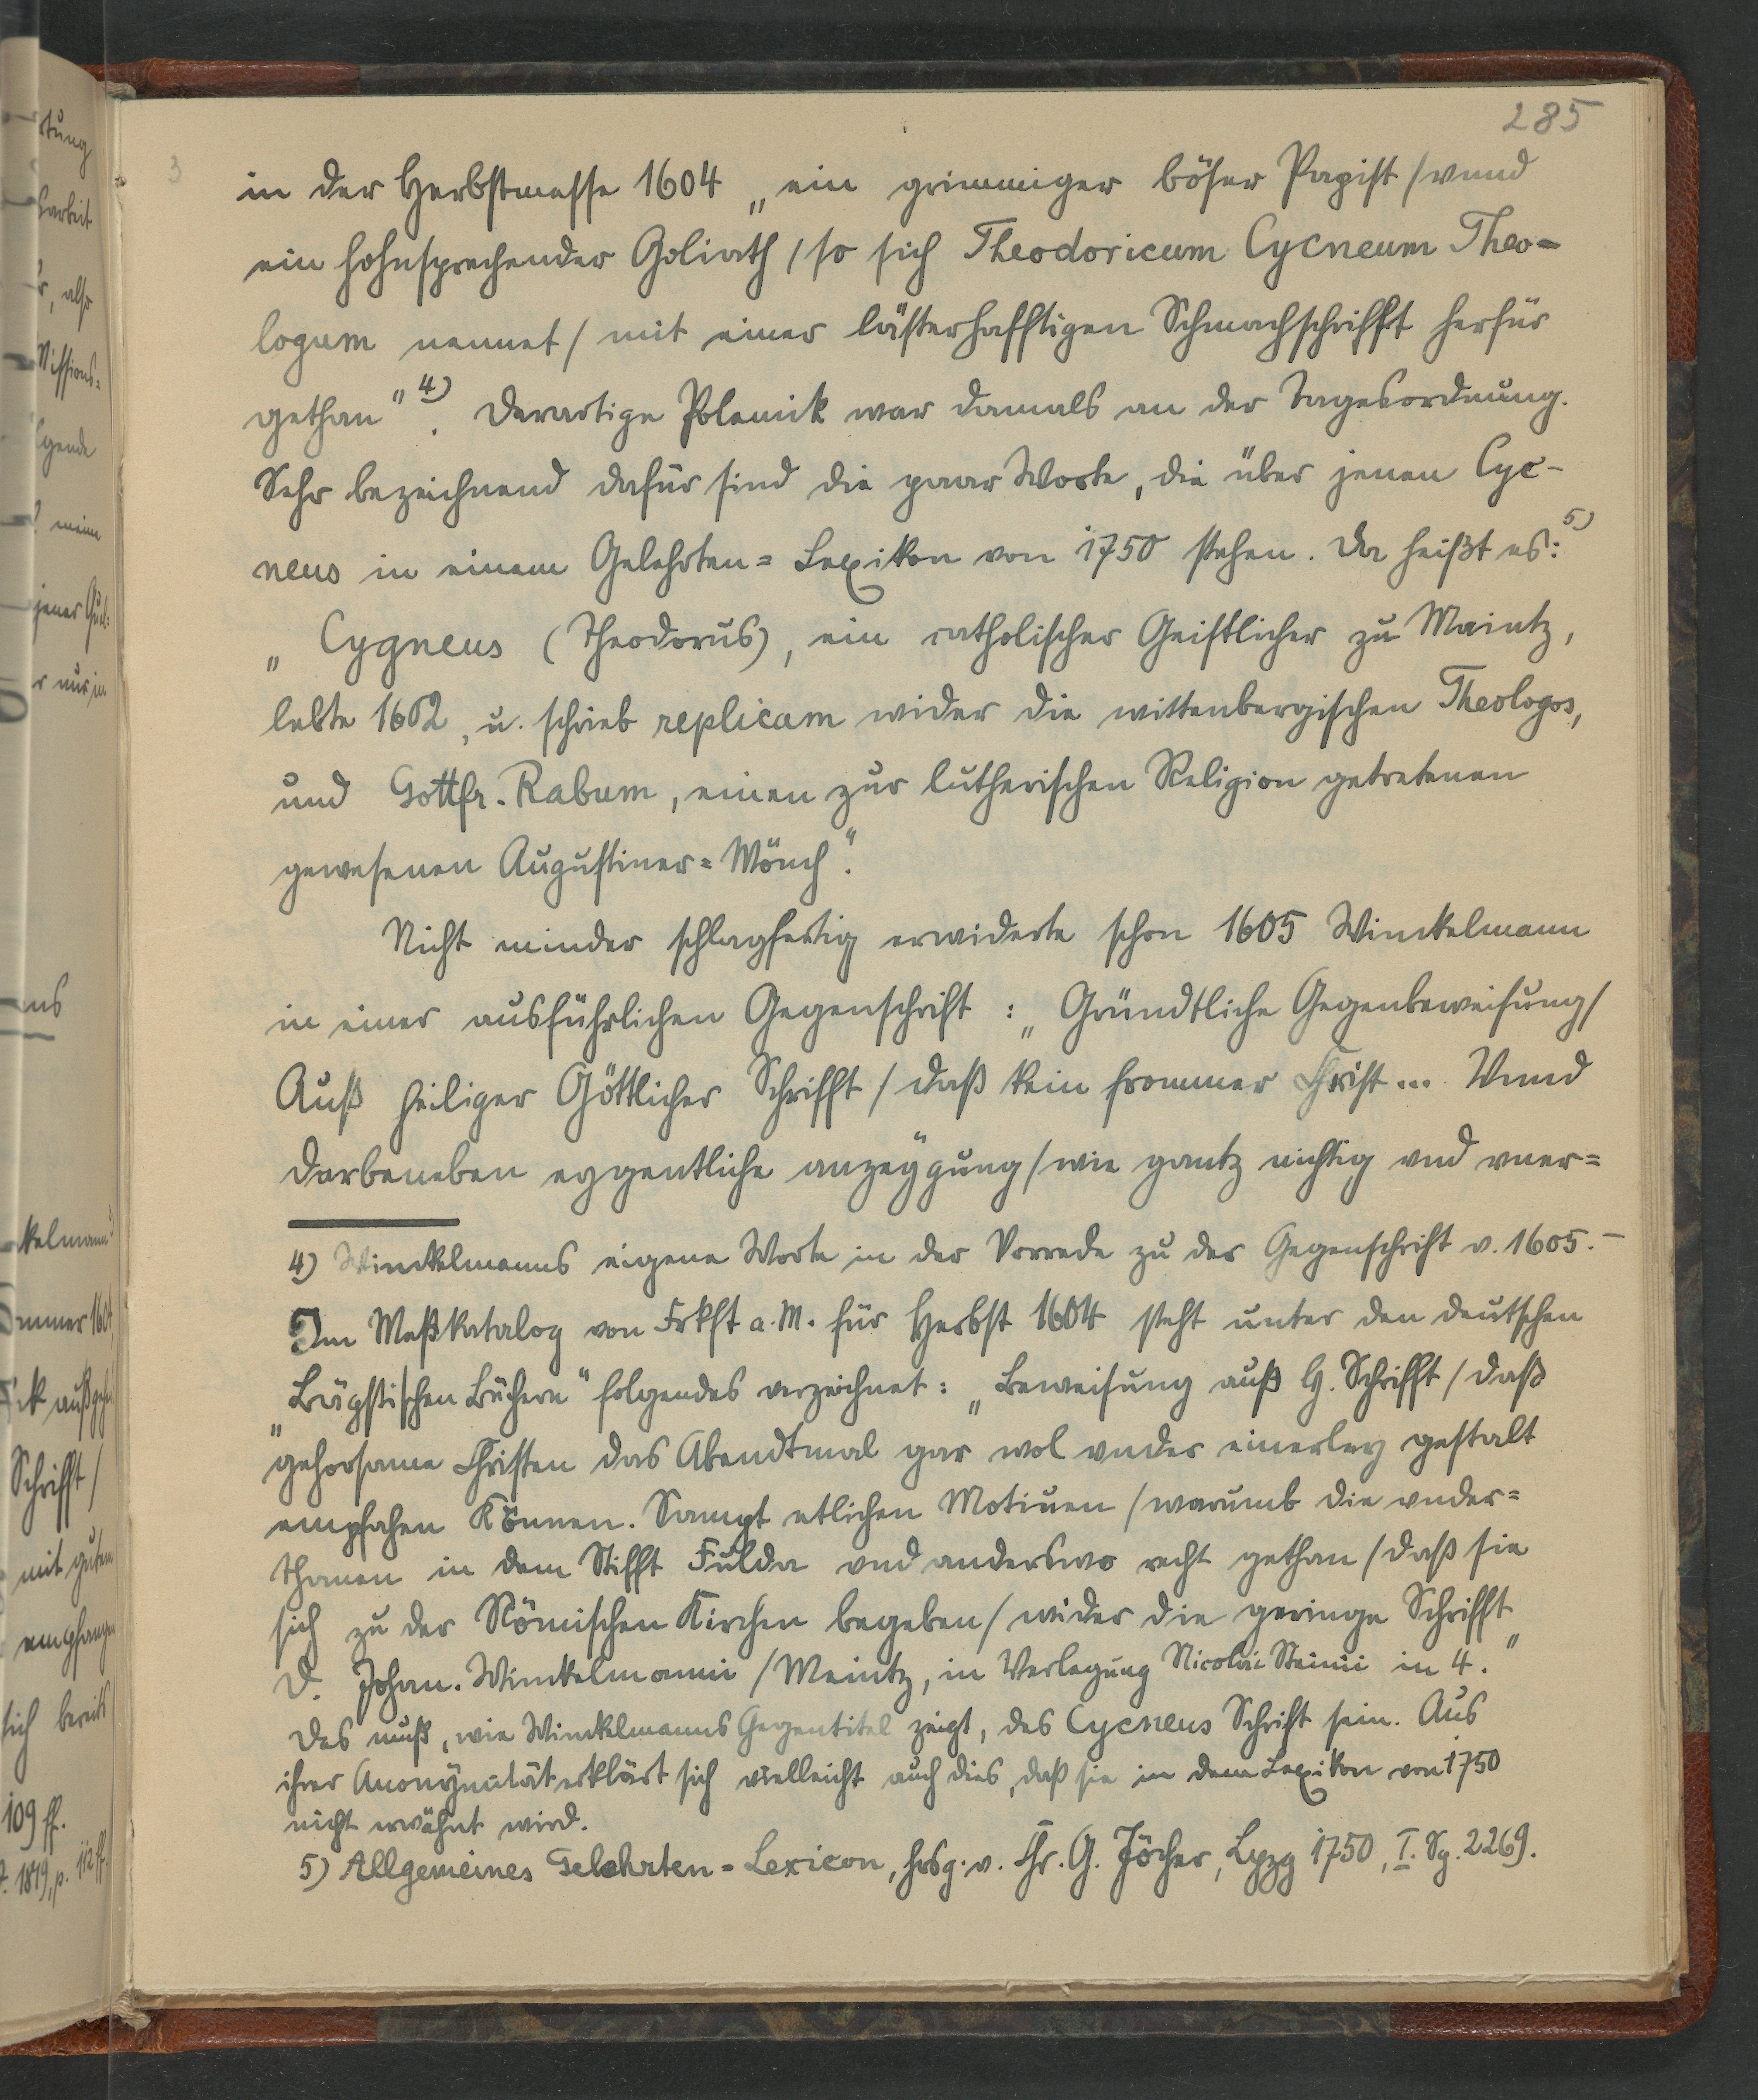 285
3
in der Herbstmesse 1604 „ein grimmiger böser Papist / vnnd
ein hohnsprechender Goliath / so sich Theodoricum Cycneum Theo-
logum nennet / mit einer lästerhafftigen Schmachschrifft herfür
gethan“ 4). Derartige Polemik war damals an der Tagesordnung.
Sehr bezeichnend dafür sind die paar Worte, die über jenen Cyc-
neus in einem Gelehrten=Lexikon von 1750 stehen. Da heißt es: 5)
„Cygneus (Theodorus), ein catholischer Geistlicher zu Maintz,
lebte 1602, u. schrieb replicam wider die wittenbergischen Theologos,
und Gottfr. Rabum, einen zur lutherischen Religion getretenen
gewesenen Augustiner=Mönch“.
Nicht minder schlagfertig erwiderte schon 1605 Winckelmann
in einer ausführlichen Gegenschrift: „Gründtliche Gegenbeweisung /
Auß heiliger Göttlicher Schrifft / daß kein frommer Christ ... Vnnd
darbeneben eygentliche anzeÿgung / wie gantz nichtig vnd vner=
4) Winckelmanns eigene Worte in der Vorrede zu der Gegenschrift v. 1605. –
Im Meßkatalog von Frkft a. M. für Herbst 1604 steht unter den deutschen
„Bäpstischen Büchern“ folgendes verzeichnet: „Beweisung auß H. Schrifft / daß
gehorsame Christen das Abendtmal gar wol vnder einerley gestalt
empfahen können. Sampt etlichen Motiuen / warumb die vnder=
thanen in dem Stifft Fulda vnd anderswo recht gethan / daß sie
sich zu der Römischen Kirchen begeben / wider die geringe Schrifft
D. Johan. Winckelmanni / Meintz, in Verlegung Nicolai Steinii in 4.“
Das muß, wie Winckelmanns Gegentitel zeigt, des Cycneus Schrift sein. Aus
ihrer Anonymität erklärt sich vielleicht auch dies, daß sie in dem Lexikon von 1750
nicht erwähnt wird.
5) Allgemeines Gelehrten=Lexicon, hrsg. v. Chr. G. Jöcher, Lpzg 1750, I. Sp. 2269.